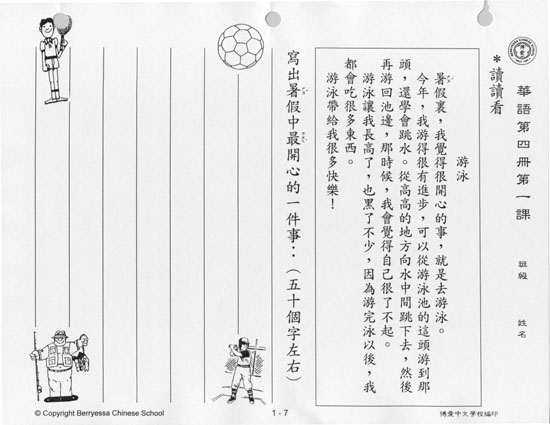 華語第四冊第一課
班級
姓名
*讀讀看
游泳
暑假裏，我覺得很開心的事，就是去游泳。
今年，我游得很有進步，可以從游泳池的這頭游到那
頭，還學會跳水。從高高的地方向水中間跳下去，然後
再游回池邊，那時候，我會覺得自己很了不起。
游泳讓我長高了，也黑了不少，因為游完泳以後，我
都會吃很多東西。
游泳帶給我很多快樂！
寫出暑假中最開心的一件事：（五十個字左右）
© Copyright Berryessa Chinese School
1 - 7
博愛中文學校編印